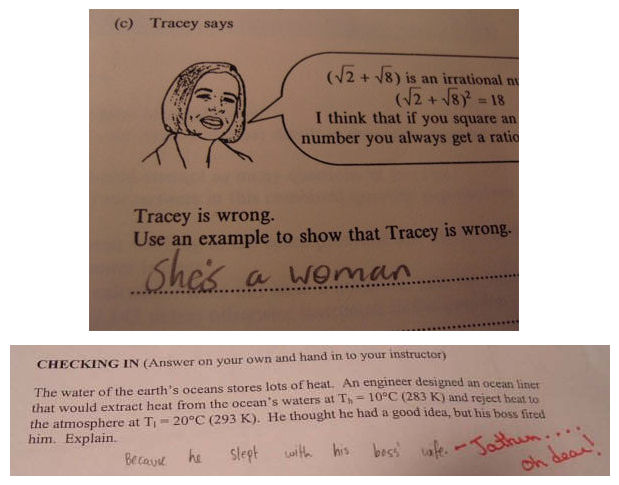 (c) Tracey says
(√2 + √8) is an irrational nu
(√2 + √8)² = 18
I think that if you square an
number you always get a ratio
Tracey is wrong.
Use an example to show that Tracey is wrong.
She's a woman
CHECKING IN (Answer on your own and hand in to your instructor)
The water of the earth's oceans stores lots of heat. An engineer designed an ocean liner
that would extract heat from the ocean's waters at Tₕ = 10°C (283 K) and reject heat to
the atmosphere at Tₗ = 20°C (293 K). He thought he had a good idea, but his boss fired
him. Explain.
Because he slept with his boss' wife. - Jathun....
oh dear!